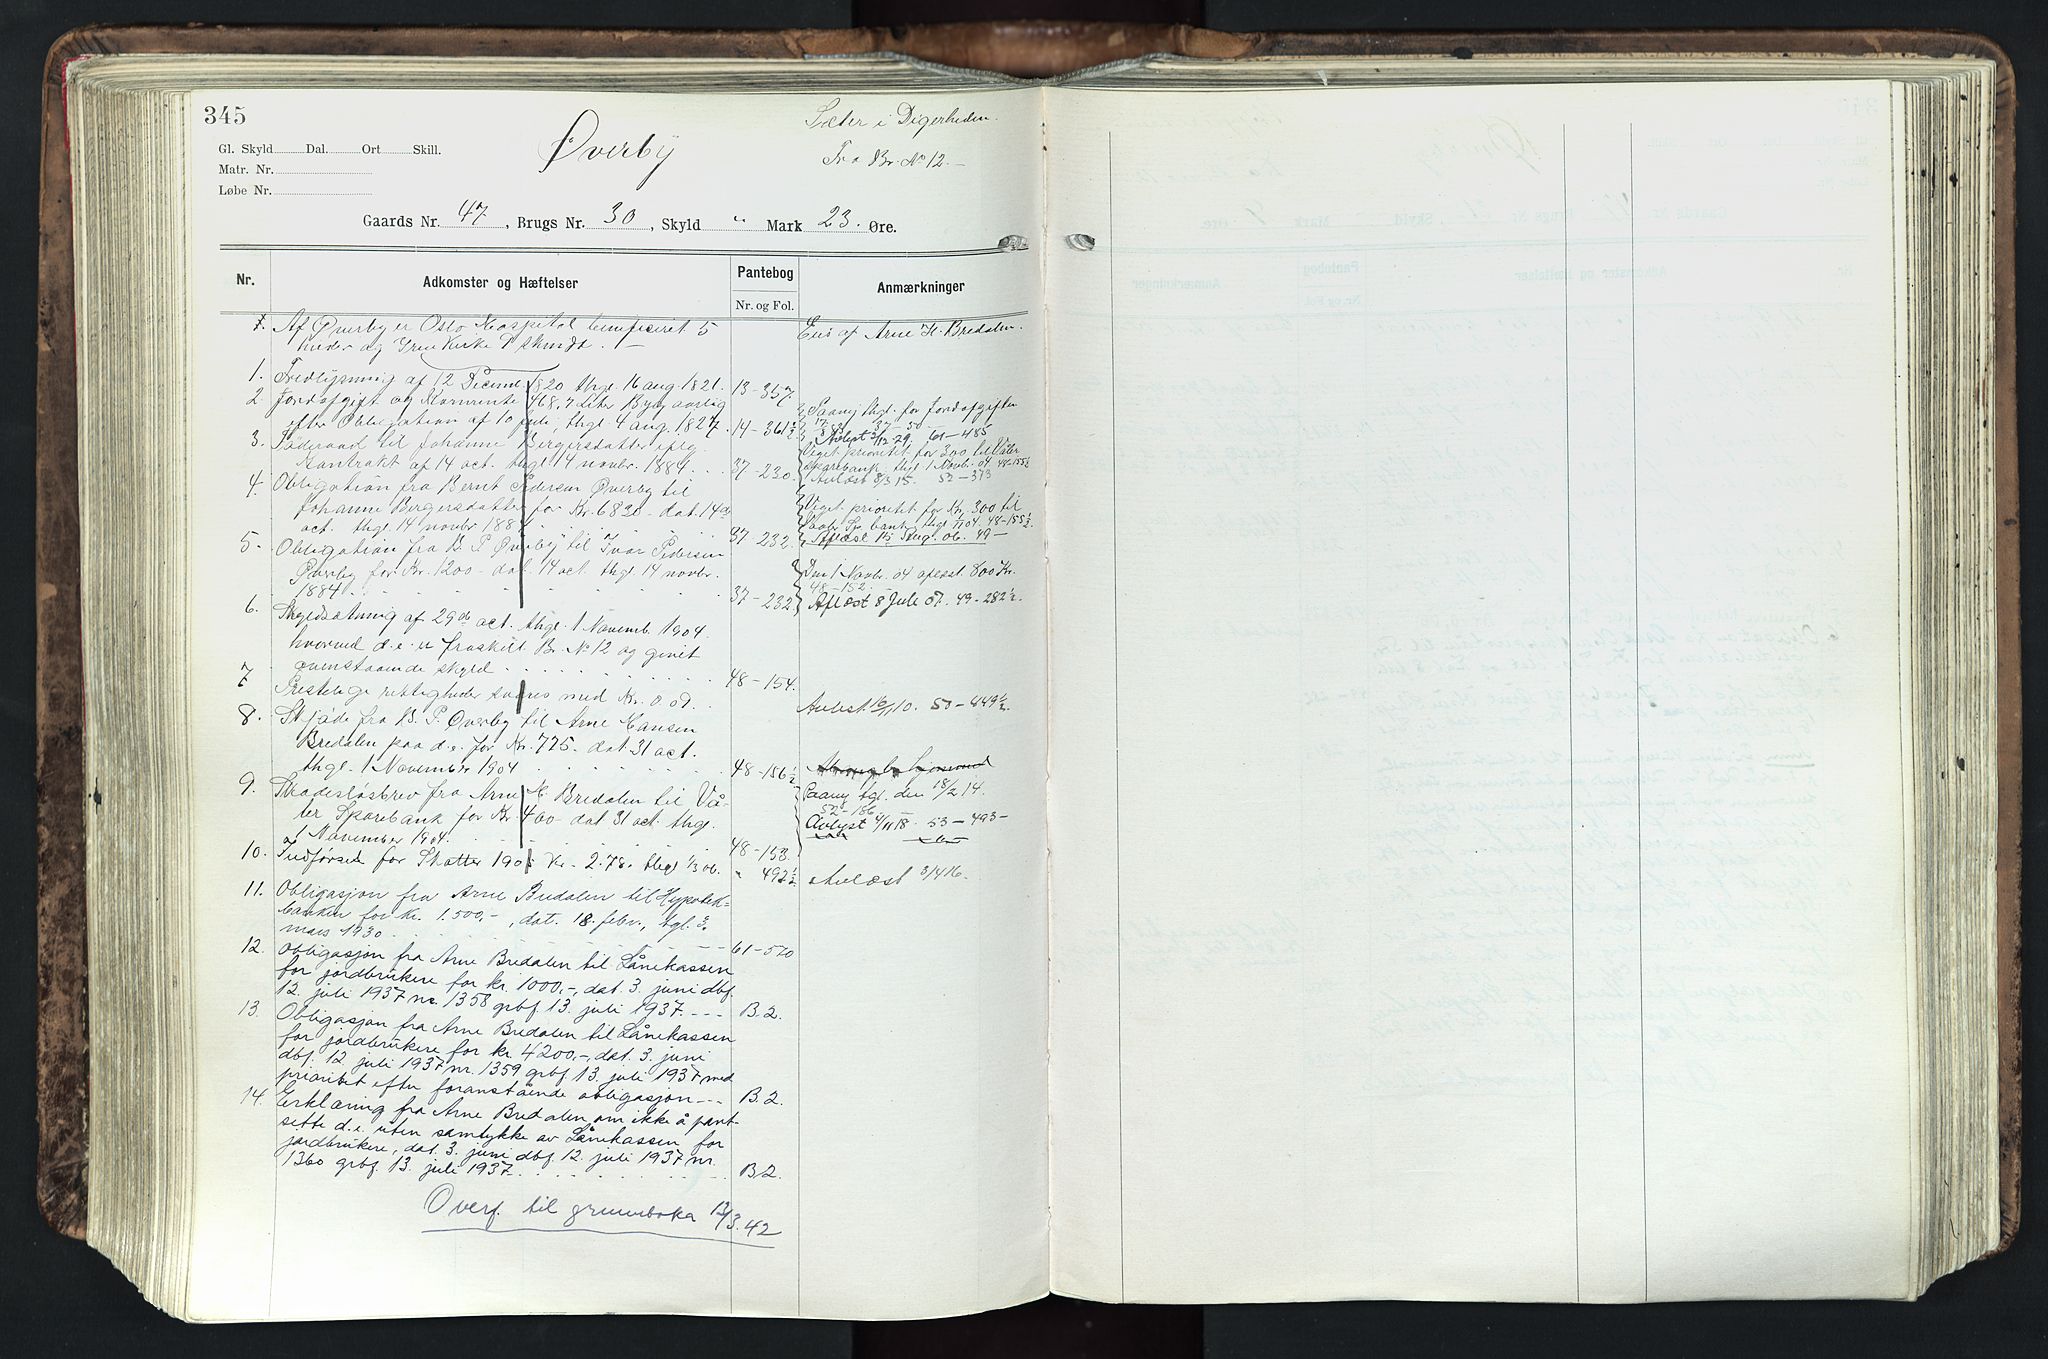 345
Sæter i Digerheden.
Gl. Skyld Dal. Ort Skill.
Øverby
Matr. Nr.
Fra Br. No 12.-
Løbe Nr.
Gaards Nr. 47, Brugs Nr. 30, Skyld " Mark 23. Øre.
Nr. Adkomster og Hæftelser Pantebog Anmærkninger
Nr. og Fol.
Af Øverby er Oslo Hospital beneficeret 5 Eies af Arne H. Bredalen.
huder og
1. Fredlysning af 12 Decemb. 1820 thgl. 16 aug. 1821. 13-357.
2 Jordafgift og Kornrente 468,7 Liter Byg aarlig
efter Obligation af 10 juli, thgl. 4 aug. 1827. 14-361½
Paany thgl. for Jordafgiften
37-50
Avlyst 3/12-29. 61-485
3. Føderaad til Johanne Bergersdatter eflg.
Kontrakt af 14 oct. thgl. 14 novbr. 1884. . . 37-230.
Veget prioritet for 300 til Våler
Sparebank. thgl. 1 Novb. 04 48-155½
Avlæst 8/3 15. 52-373
4. Obligation fra Bernt Pedersen Øverby til
Johanne Bergersdatter for Kr. 6820- dat. 14de
oct. thgl. 14 novbr 1884 37-232.
Veget prioritet for Kr. 300 til
Vaaler Sp. bank thgl. 1/11 04. 48-155½
Aflæst Aug. 06. 49-
5. Obligation fra B. P. Øverby til Ivar Pedersen
Øverby for Kr. 1200- dat. 14 oct. thgl. 14 novbr.
1884. 37-232.
Den 1 Novbr. 04 aflæst. 800 Kr.
48-152
Aflæst 8 Juli 07. 49-282½.
6. Skyldsætning af 29de oct. thgl. 1 Novemb. 1904.
hvorved d. e. er fraskilt Br. No 12 og givet
ovenstaaende skyld 48-154.
7 Prestelige rettigheder svares med Kr. 0.09. Avlæst 16/11 10. 50-449½.
8. Skjøde fra B. P. Øverby til Arne Hansen
Bredalen paa d. e. for Kr. 775- dat. 31 oct.
thgl. 1 November 1904 48-156½
9. Skadesløsbrev fra Arne H. Bredalen til Vå-
ler Sparebank for Kr. 400- dat 31 oct. thgl.
1 November 1904. 48-153.
Paany tgl. den 18/2 14.
52-186
Avlyst 4/11 18. 53-493-
10. Indførsel for Skatter 1905 Kr. 2.78. thgl. 1/3 06. " 492½ Avlæst 3/4 16.
11. Obligasjon fra Arne Bredalen til Hypotek-
banken for kr. 1.500,-, dat. 18. febr., tgl. 3.
mars 1930. 61-570
12. Obligasjon fra Arne Bredalen til Lånekassen
for jordbrukere for kr. 1000,-, dat. 3. juni dbf.
12. juli 1937 nr. 1358 grbf. 13. juli 1937. - - - B. 2.
13. Obligasjon fra Arne Bredalen til Lånekassen
for jordbrukere for kr. 4200,-, dat. 3. juni
dbf. 12 juli 1937 nr. 1359 grbf. 13. juli 1937 med
prioritet efter foranstående obligasjon - - - B. 2.
14. Erklæring fra Arne Bredalen om ikke å pant-
sette d. e. uten samtykke av Lånekassen for
jordbrukere, dat. 3. juni dbf. 12. juli 1937 nr.
1360 grbf. 13. juli 1937. B. 2.
Overf. til grunnboka 12/3.42